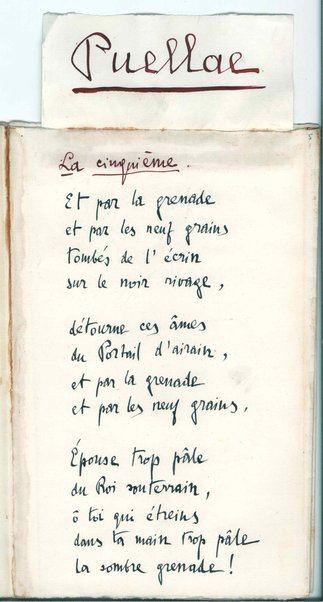 Puellae
La cinquième.
Et par la grenade
et par les neuf grains
tombés de l'écrin
sur le noir rivage,
détourne ces âmes
du Portail d'airain,
et par la grenade
et par les neuf grains,
Épouse trop pâle
du Roi souterrain,
ô toi qui étreins
dans ta main trop pâle
la sombre grenade !